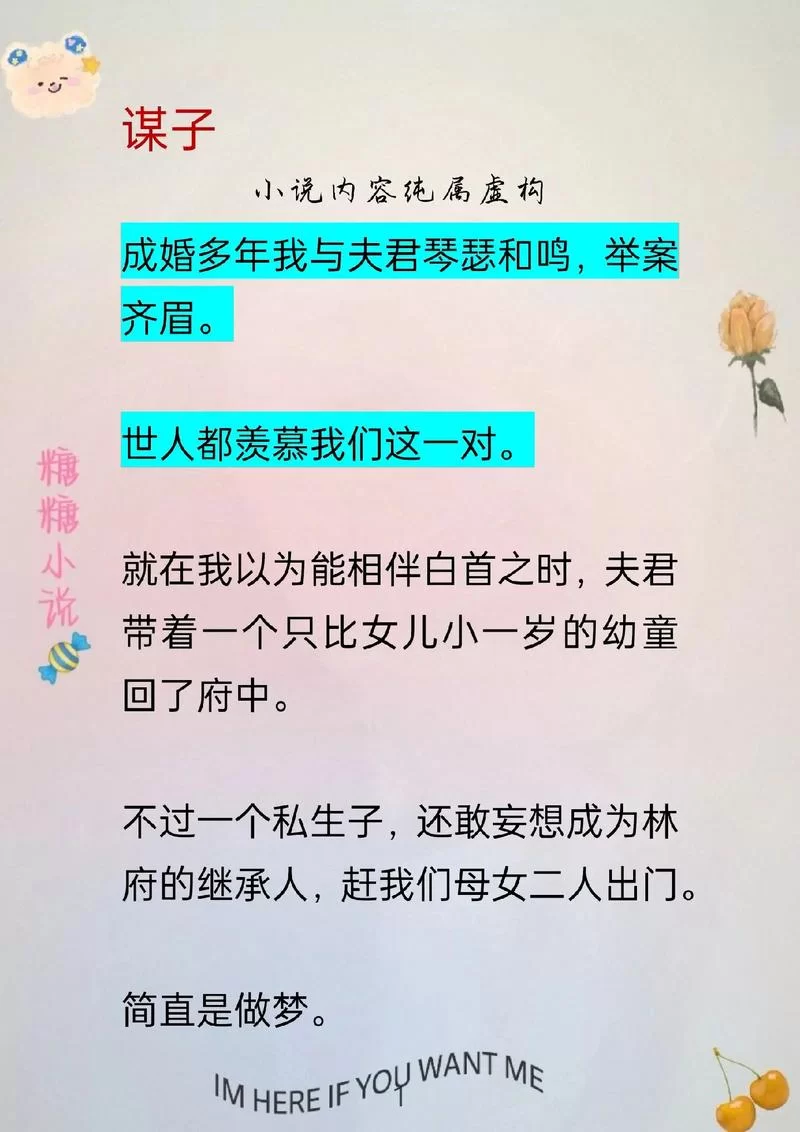 谋子
小说内容纯属虚构
成婚多年我与夫君琴瑟和鸣，举案
齐眉。
世人都羡慕我们这一对。
就在我以为能相伴白首之时，夫君
带着一个只比女儿小一岁的幼童
回了府中。
不过一个私生子，还敢妄想成为林
府的继承人，赶我们母女二人出门。
简直是做梦。
糖糖小说
IM HERE IF YOU WANT ME
1